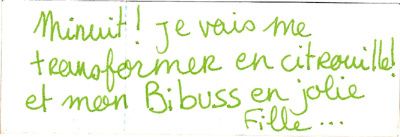 Minuit! je vais me
transformer en citrouille!
et mon Bibuss en jolie
Fille ...